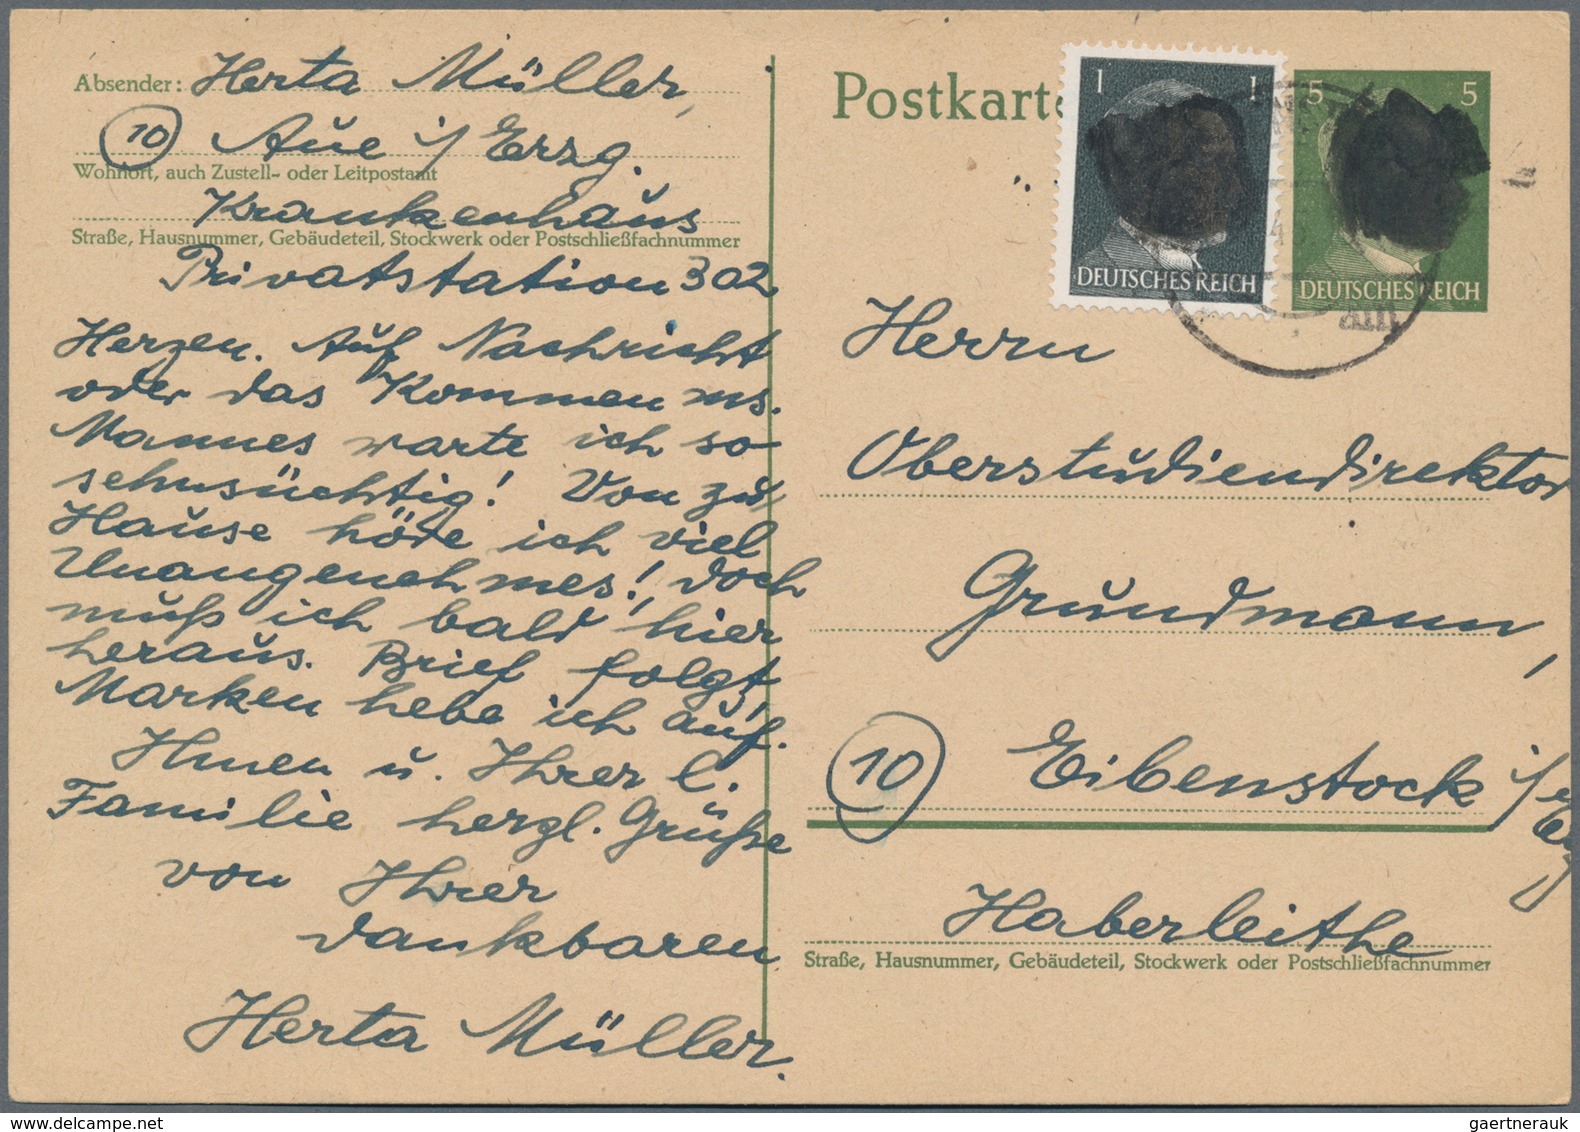 Absender: Herta Müller,
(10) Aue i/Erzg.
Wohnort, auch Zustell- oder Leitpostamt
Krankenhaus
Straße, Hausnummer, Gebäudeteil, Stockwerk oder Postschließfachnummer
Privatstation 302
Herzen. Auf Nachricht
oder das Kommen ms.
Mannes warte ich so
sehnsüchtig! Von zu
Hause höre ich viel
Unangenehmes!, doch
muß ich bald hier
heraus. Brief folgt,
Marken hebe ich auf.
Ihnen u. Ihrer l.
Familie herzl. Grüße
von Ihrer
dankbaren
Herta Müller.
Postkarte
1 1
DEUTSCHES REICH
5 5
DEUTSCHES REICH
Herrn
Oberstudiendirektor
Grundmann,
(10) Eibenstock i/Erzg
Haberleithe
Straße, Hausnummer, Gebäudeteil, Stockwerk oder Postschließfachnummer
www.delcampe.net
gaertnerauk